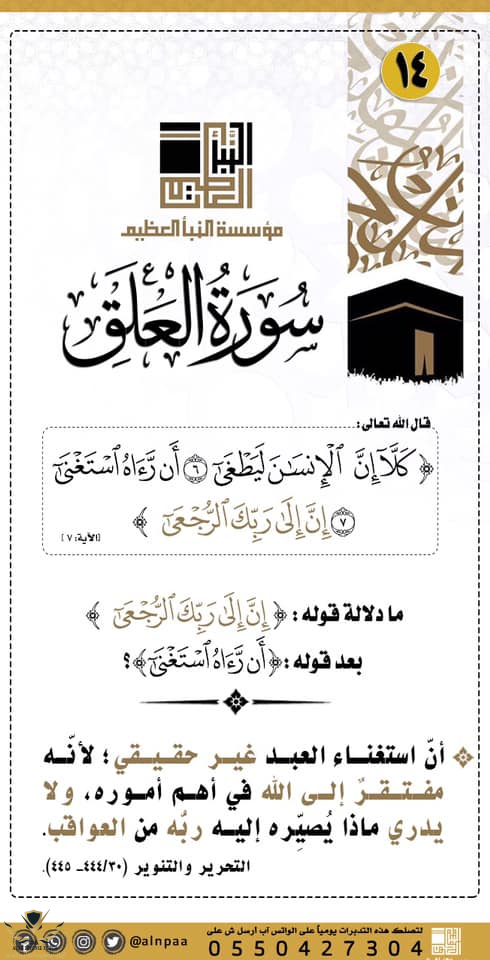 ١٤
النبأ العظيم
مؤسسة النبأ العظيم
سُورَةُ العَلَقِ
قال الله تعالى:
﴿ كَلَّآ إِنَّ ٱلْإِنسَٰنَ لَيَطْغَىٰٓ ٦ أَن رَّءَاهُ ٱسْتَغْنَىٰٓ
٧ إِنَّ إِلَىٰ رَبِّكَ ٱلرُّجْعَىٰٓ ﴾
[الآية: ٧]
ما دلالة قوله : ﴿ إِنَّ إِلَىٰ رَبِّكَ ٱلرُّجْعَىٰٓ ﴾
بعد قوله : ﴿ أَن رَّءَاهُ ٱسْتَغْنَىٰٓ ﴾؟
أنّ استغناء العبد غير حقيقي؛ لأنّه
مفتقرٌ إلى الله في أهم أموره، ولا
يدري ماذا يُصيِّره إليه ربُّه من العواقب.
التحرير والتنوير (٣٠/ ٤٤٤- ٤٤٥).
لتصلك هذه التدبرات يومياً على الواتس آب ارسل ش على
@alnpaa
0550427304